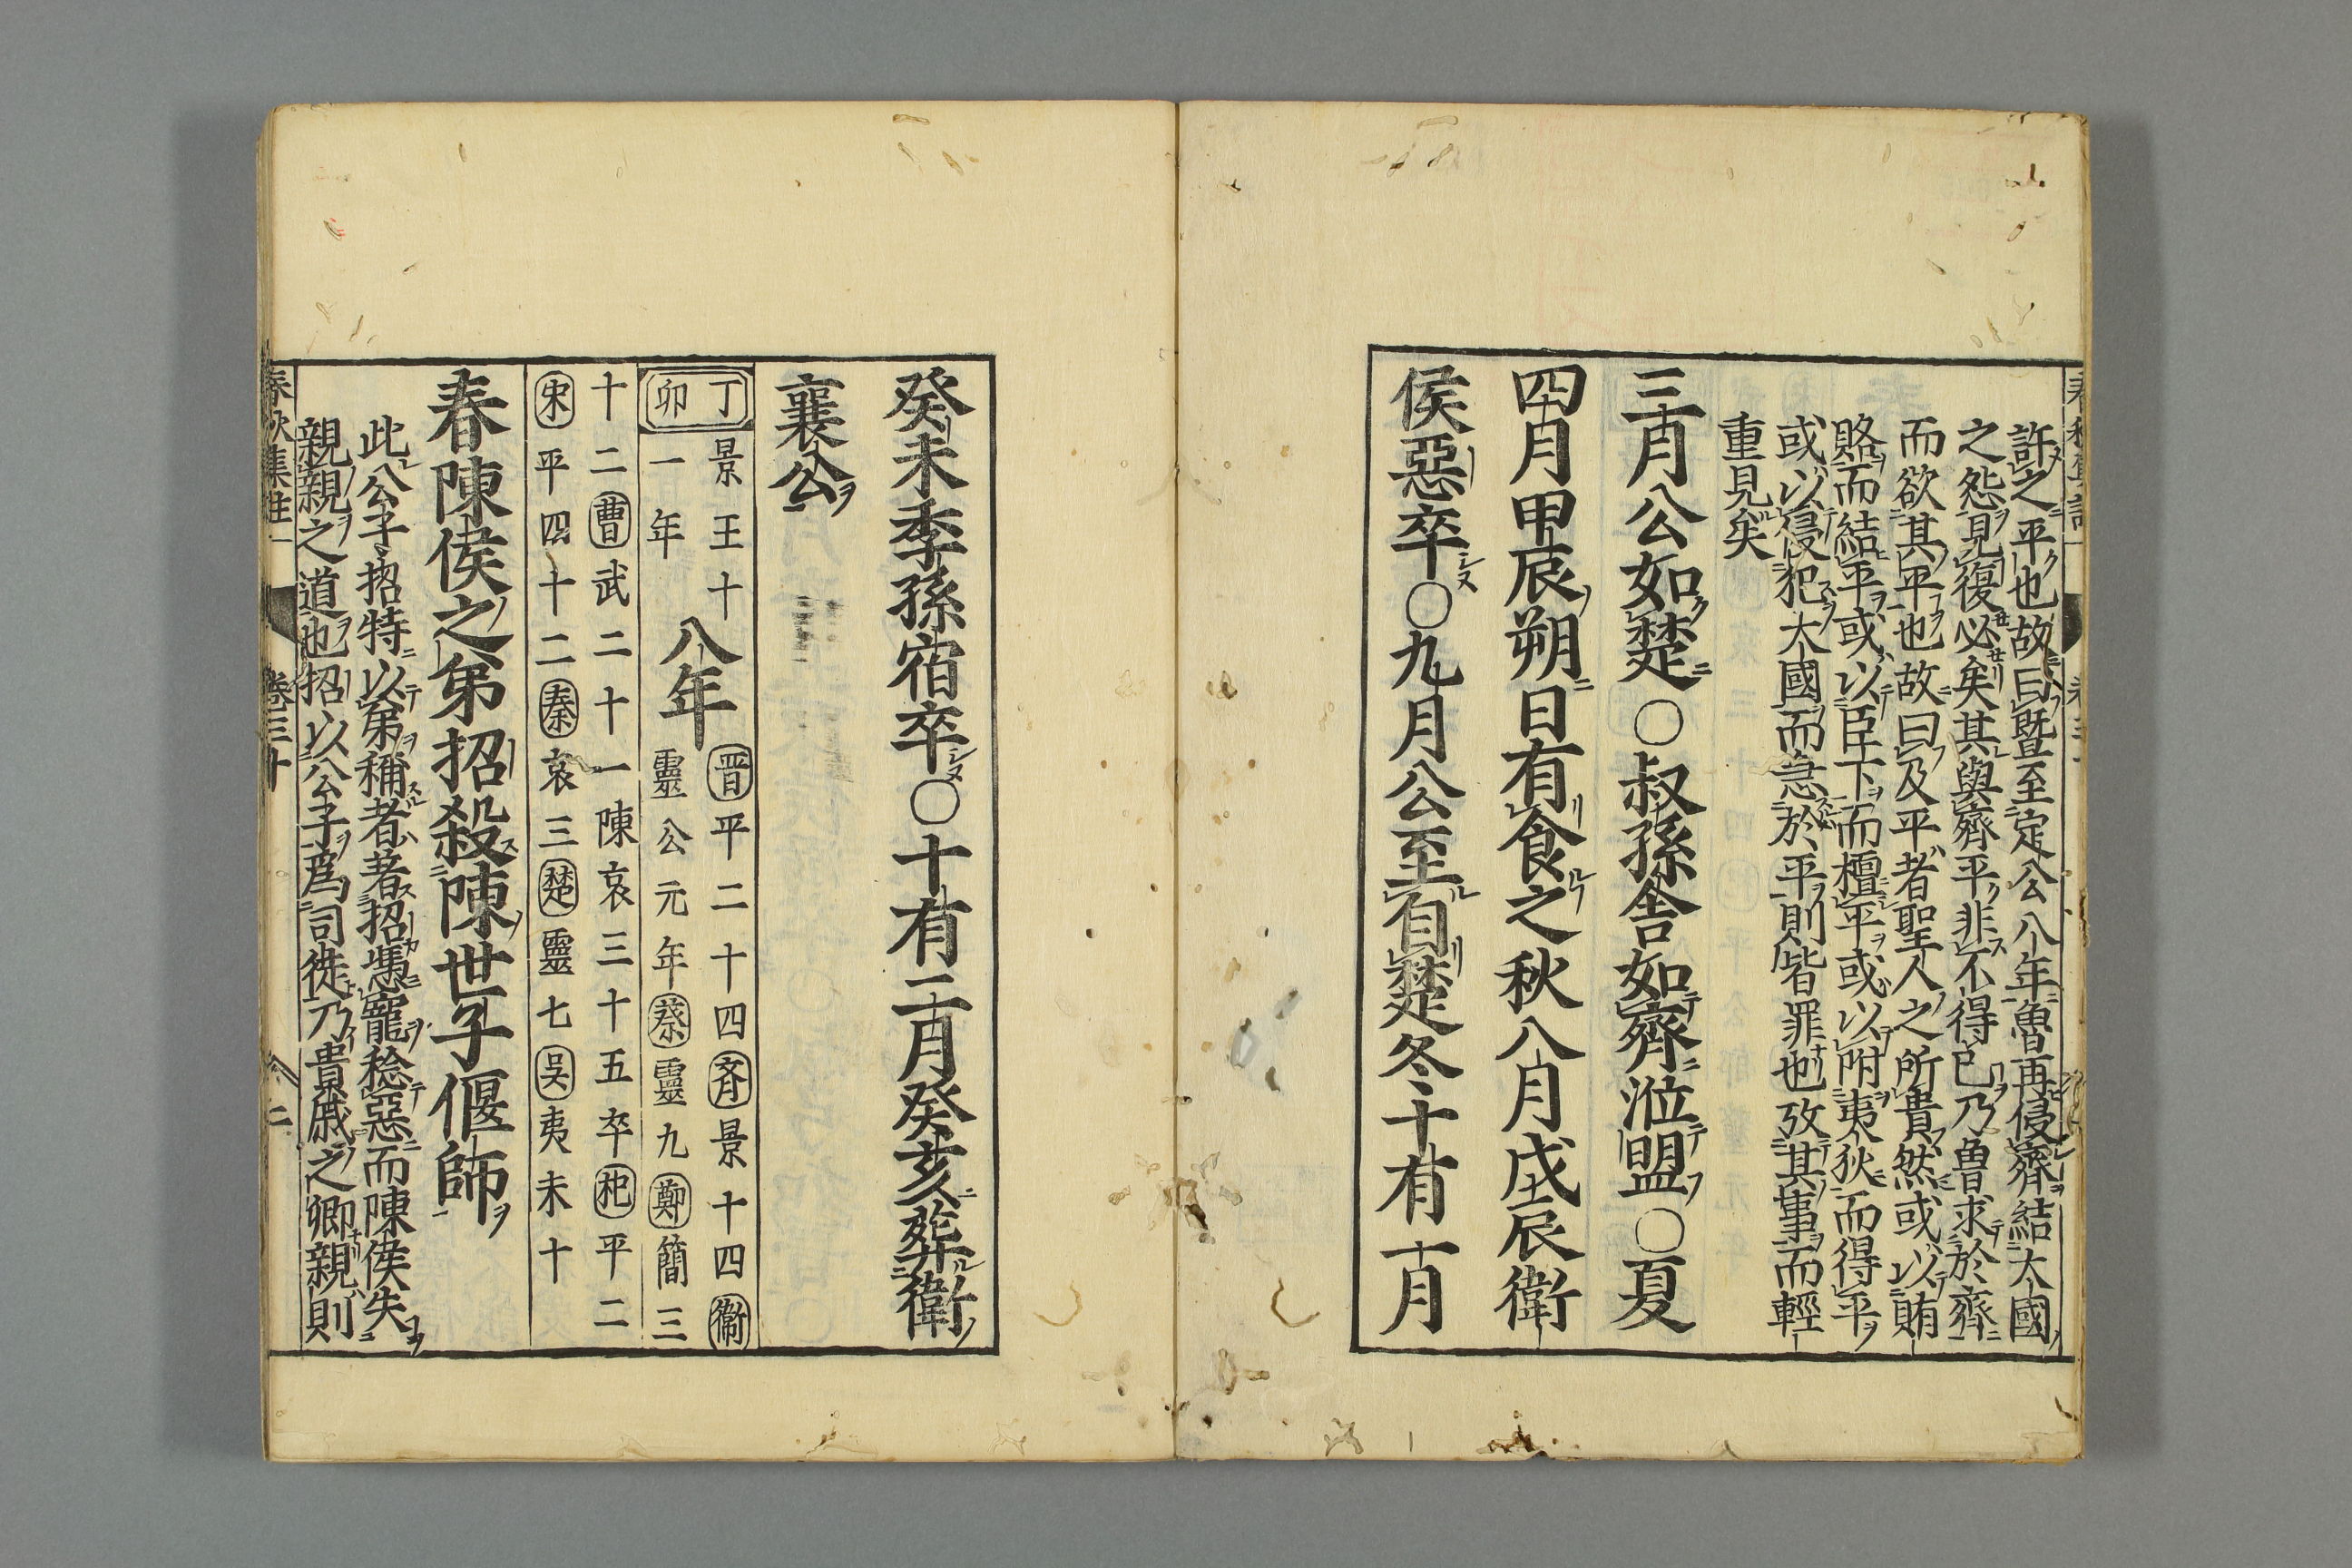 許之平也故曰曁至定公八年魯再侵齊結大國
之怨見復必矣其與齊平非不得已乃魯求於齊
而欲其平也故曰及平者聖人之所貴然或以賄
賂而結平或以臣下而檀平或以附夷狄而得平
或以侵犯大國而急於平則皆罪也攷其事而輕
重見矣
三月公如楚○叔孫舍如齊涖盟○夏
四月甲辰朔日有食之秋八月戊辰衛
侯惡卒○九月公至自楚冬十有一月
癸未季孫宿卒○十有二月癸亥葬衛
襄公
丁卯
景王十一年
八年
晋平二十四斉景十四衞靈公元年蔡靈九鄭簡三
十二曹武二十一陳哀三十五卒杞平二
宋平四十二秦哀三楚靈七吳夷末十
春陳侯之弟招殺陳世子偃師
此公子招特以弟稱者著招馮寵稔惡而陳侯失
親親之道也招以公子爲司徙乃貴戚之卿親則
春秋集註
卷三十
二